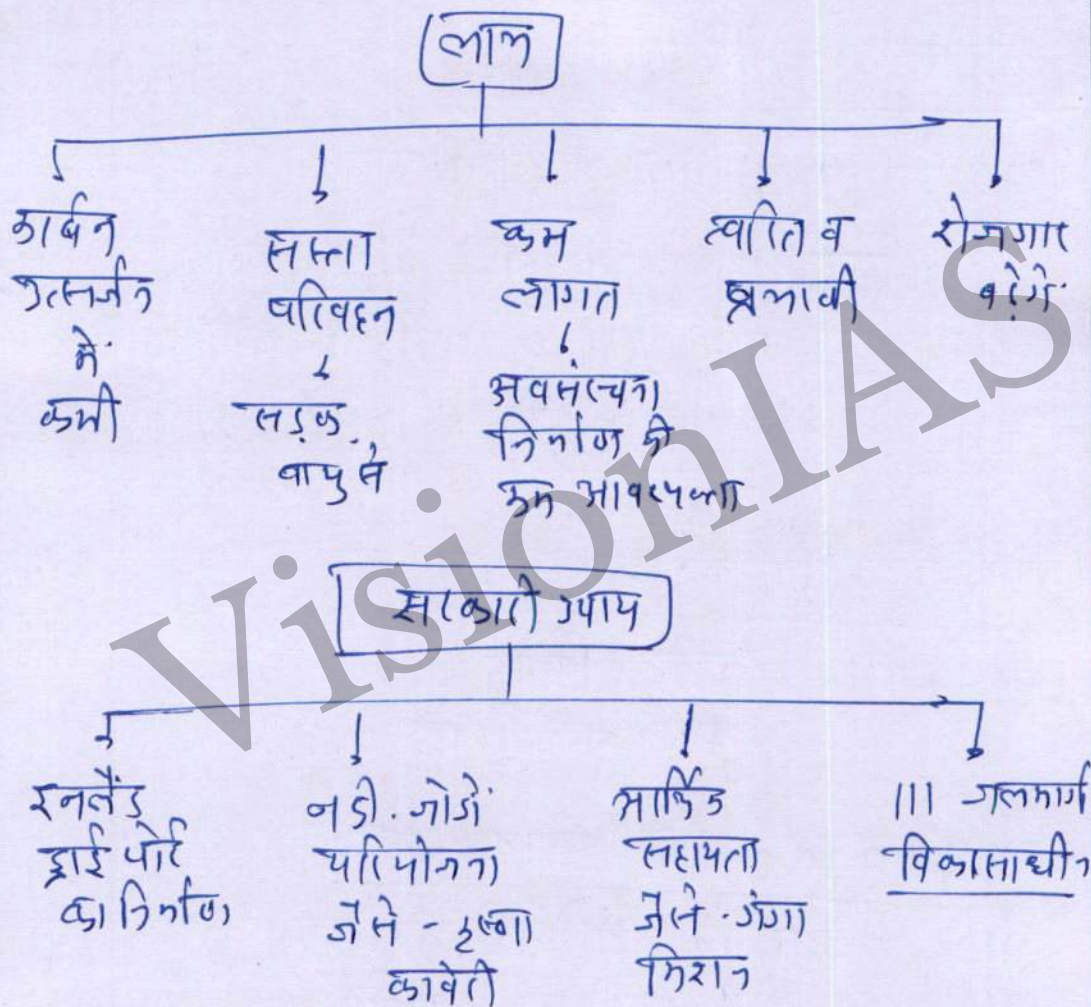 लाभ
कार्बन
उत्सर्जन
में
कमी
सस्ता
परिवहन
सड़क,
वायु से
कम
लागत
अवसंरचना
निर्माण की
कम आवश्यकता
त्वरित व
प्रभावी
रोजगार
बढ़ेंगे
सरकारी उपाय
इनलैंड
ड्राई पोर्ट
का निर्माण
नदी जोड़ो
परियोजना
जैसे - कृष्णा
कावेरी
आर्थिक
सहायता
जैसे - गंगा
मिशन
111 जलमार्ग
विकासाधीन
VisionIAS